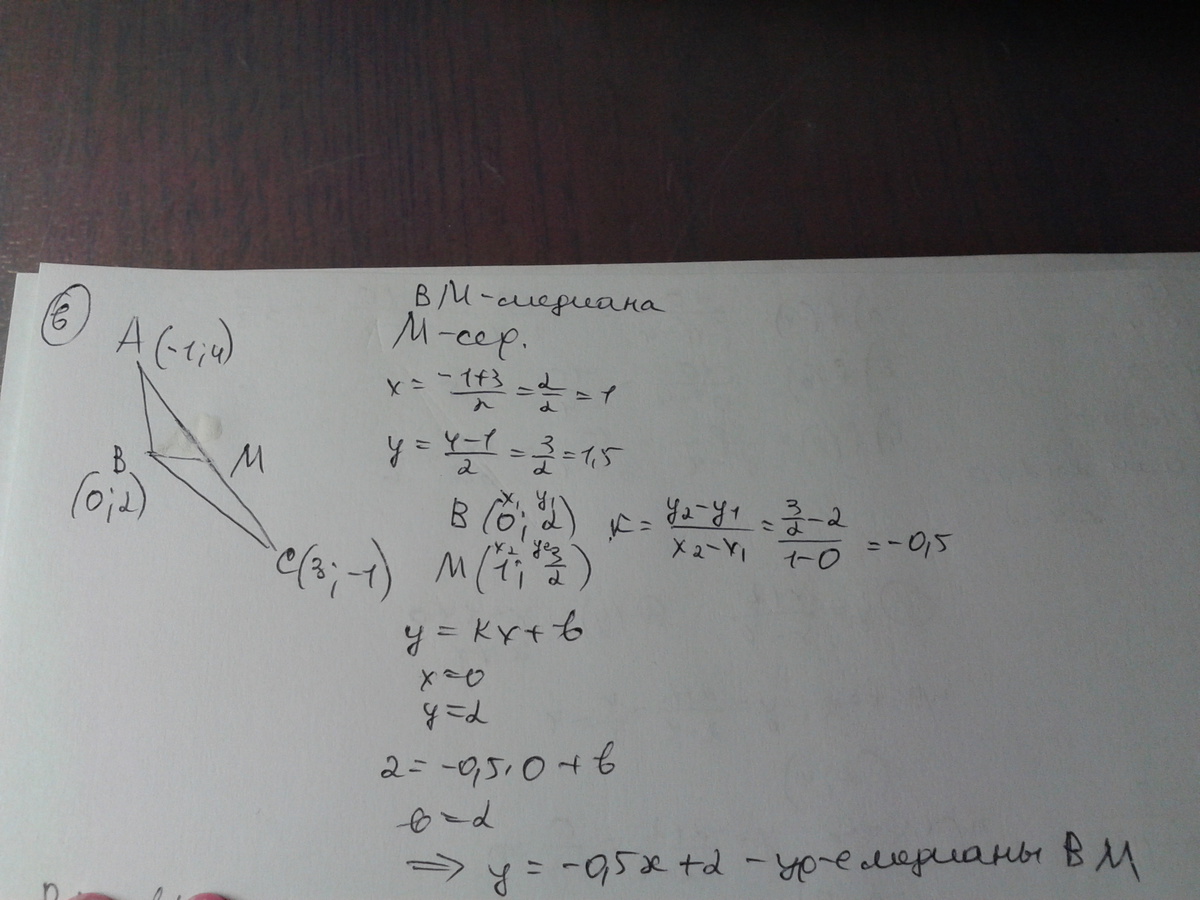 6
A (-1; 4)
B
(0; 2)
M
C (3; -1)
BM - медиана
M - сер.
x = \frac{-1+3}{2} = \frac{2}{2} = 1
y = \frac{4-1}{2} = \frac{3}{2} = 1,5
x₁ y₁
B (0; 2) K = \frac{y₂-y₁}{x₂-x₁} = \frac{\frac{3}{2}-2}{1-0} = -0,5
x₂ y₂
M (1; \frac{3}{2})
y = Kx + b
x = 0
y = 2
2 = -0,5 · 0 + b
b = 2
⇒ y = -0,5x + 2 - ур-е медианы BM